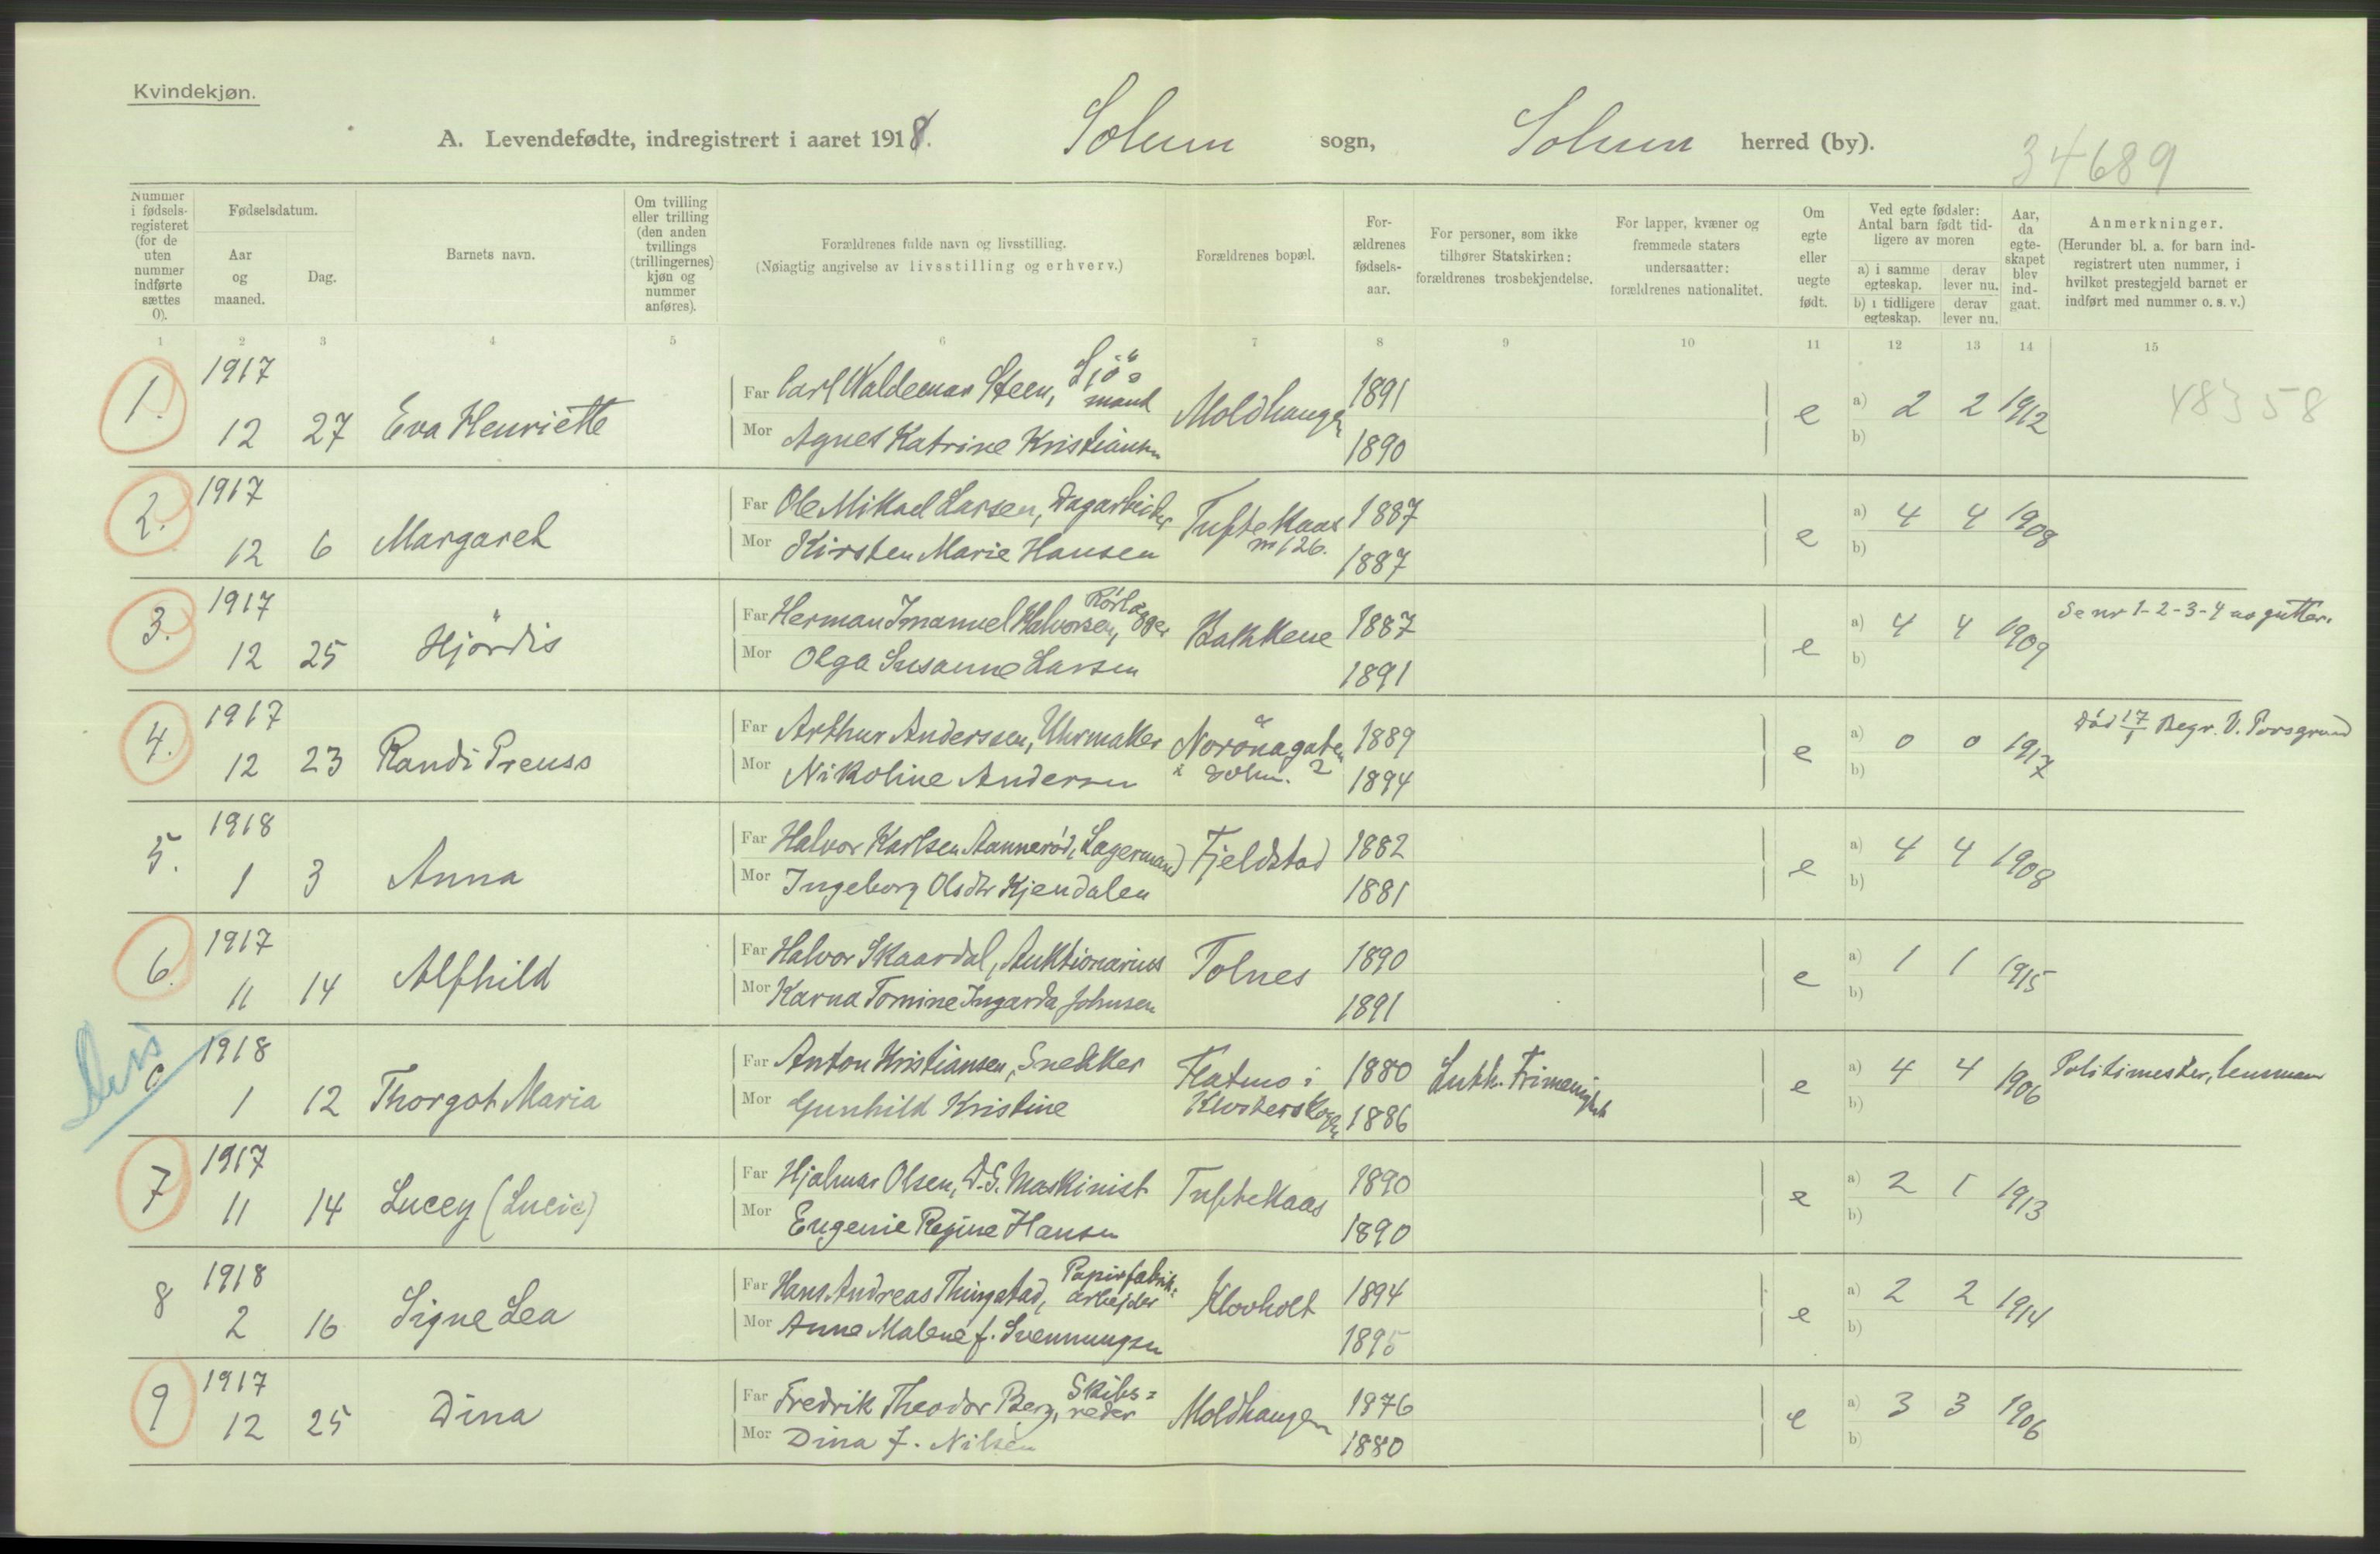 Kvindekjøn.
A. Levendefødte, indregistrert i aaret 1918. Solum sogn, Solum herred (by).
34689
Nummer i fødsels-registeret (for de uten nummer indførte sættes 0).
Fødselsdatum.
Aar og maaned.
Dag.
Barnets navn.
Om tvilling eller trilling (den anden tvillings (trillingernes) kjøn og nummer anføres).
Forældrenes fulde navn og livsstilling.
(Nøiagtig angivelse av livsstilling og erhverv.)
Forældrenes bopæl.
For-ældrenes fødsels-aar.
For personer, som ikke tilhører Statskirken: forældrenes trosbekjendelse.
For lapper, kvæner og fremmede staters undersaatter: forældrenes nationalitet.
Om egte eller uegte født.
Ved egte fødsler: Antal barn født tid-ligere av moren
a) i samme egteskap. derav lever nu.
b) i tidligere egteskap. derav lever nu.
Aar, da egte-skapet blev ind-gaat.
Anmerkninger.
(Herunder bl. a. for barn ind-registrert uten nummer, i hvilket prestegjeld barnet er indført med nummer o. s. v.)
1 2 3 4 5 6 7 8 9 10 11 12 13 14 15
1. 1917 12 27 Eva Henriette
Far Carl Waldemar Steen, Sjömand Moldhaugen 1891
Mor Agnes Katrine Kristiansen 1890
e a) 2 2 1912
b)
48358
2. 1917 12 6 Margaret
Far Ole Mikael Larsen, Dagarbeider Tufte Kaas nr 126. 1887
Mor Kirsten Marie Hansen 1887
e a) 4 4 1908
b)
3. 1917 12 25 Hjördis
Far Herman Imanuel Halvorsen, Rörlægger Bakkene 1887
Mor Olga Susanne Larsen 1891
e a) 4 4 1909
b)
Se nr 1-2-3-4 av gutter.
4. 1917 12 23 Randi Preuss
Far Arthur Anderssen, Uhrmaker Norönagaten 2 1889
Mor Nikoline Andersen 1894
e a) 0 0 1917
b)
Död 17/1 Begr. V. Porsgrund
5. 1918 1 3 Anna
Far Halvor Karlsen Aannerød, Lagermand Fjeldstad 1882
Mor Ingeborg Olsdtr Kjendalen 1881
e a) 4 4 1908
b)
6. 1917 11 14 Alfhild
Far Halvor Skaardal, Auktionarius Tolnes 1890
Mor Karna Tomine Ingarda Johnsen 1891
e a) 1 1 1915
b)
Diss
0 1918 1 12 Thorgot Maria
Far Anton Kristiansen, Snekker Flatmo i Klosterskogen 1880 Luth. Frimenighet
Mor Gunhild Kristine 1886
e a) 4 4 1906
b)
Politimester, lensman
7 1917 11 14 Lucey (Lucie)
Far Hjalmar Olsen, D.S. Maskinist Tufte Kaas 1890
Mor Eugenie Regine Hansen 1890
e a) 2 1 1913
b)
8 1918 2 16 Signe Lea
Far Hans Andreas Thingstad, Papirfabrik: arbejder Klovholt 1894
Mor Anne Malene f. Svennungsen 1895
e a) 2 2 1914
b)
9 1917 12 25 Dina
Far Fredrik Theodor Berg, Skibs=reder Moldhaugen 1876
Mor Dina f. Nilsen 1880
e a) 3 3 1906
b)